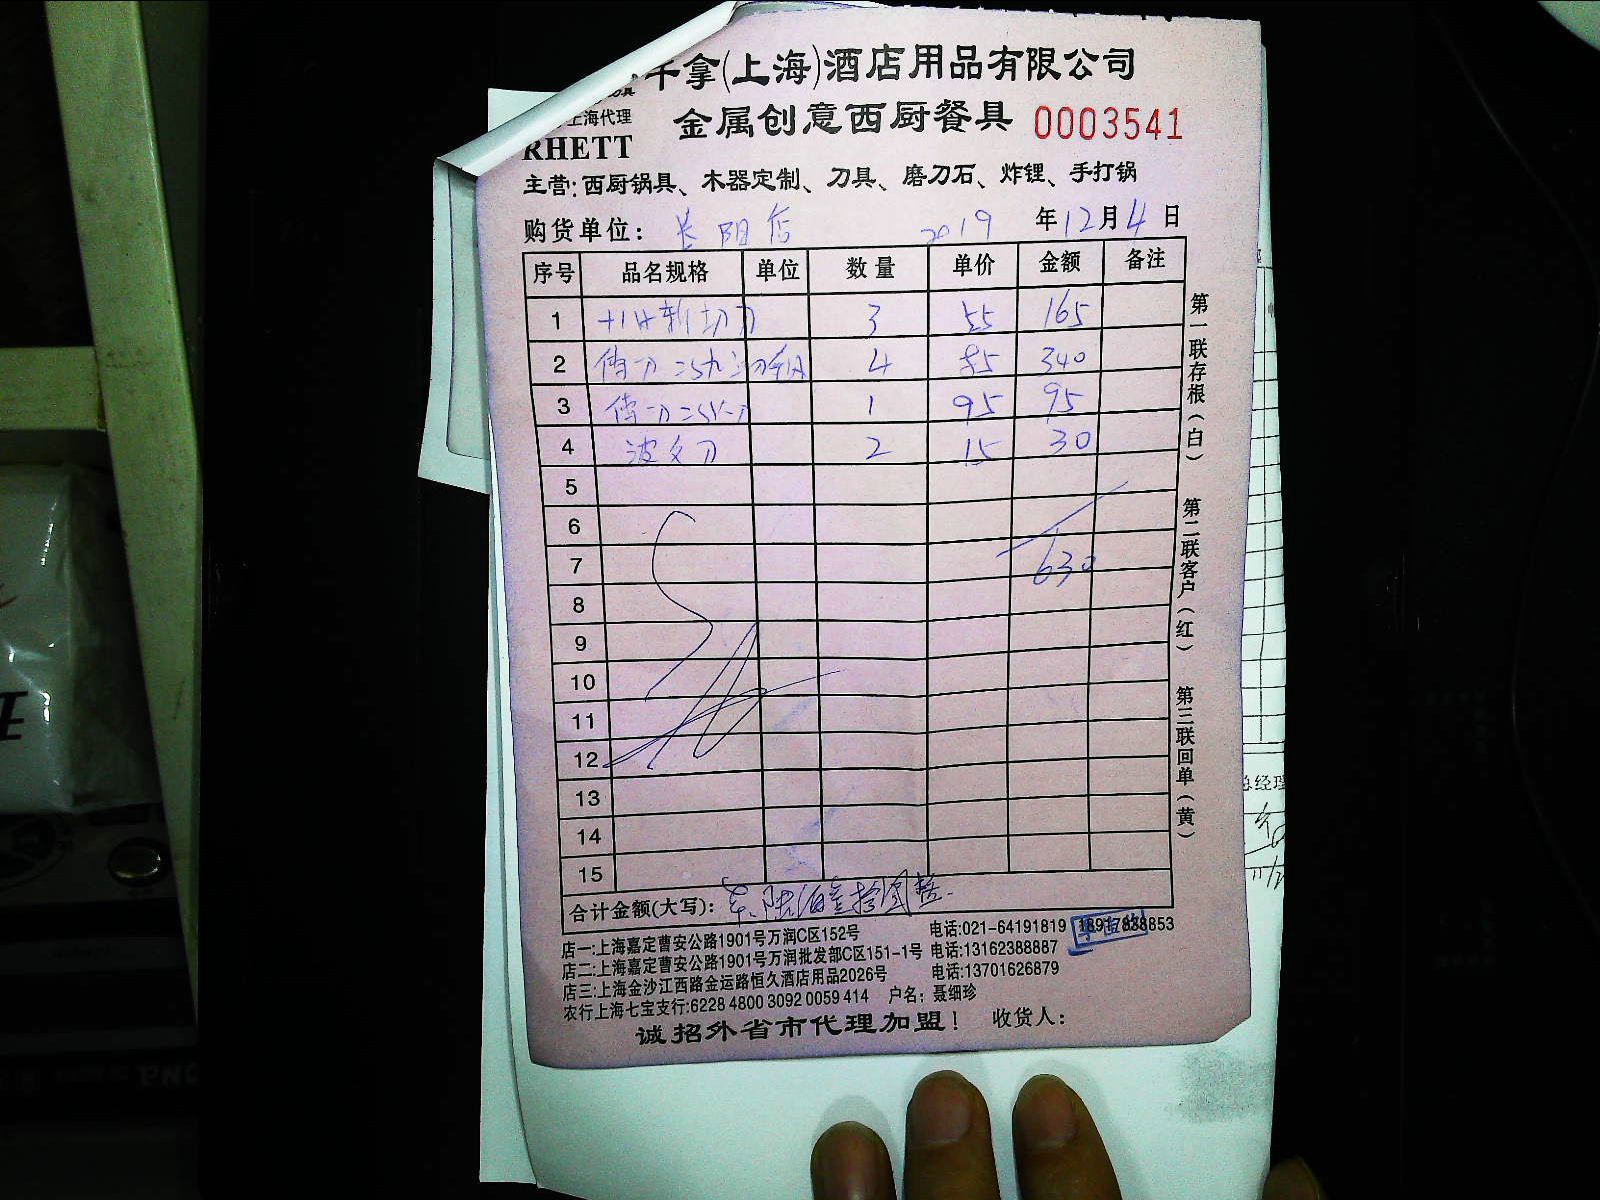 千拿(上海)酒店用品有限公司
上海代理
金属创意西厨餐具 0003541
RHETT
主营:西厨锅具、木器定制、刀具、磨刀石、炸锂、手打锅
购货单位: 长阳店 2019 年 12 月 4 日
序号 品名规格 单位 数量 单价 金额 备注
1 斩切刀 3 55 165
2 4 85 340
3 1 95 95
4 波文刀 2 15 30
5
6
7 630
8
9
10
11
12
13
14
15
合计金额(大写): 陆佰叁拾圆整
店一:上海嘉定曹安公路1901号万润C区152号 电话:021-64191819 18917838853
店二:上海嘉定曹安公路1901号万润批发部C区151-1号 电话:13162388887
店三:上海金沙江西路金运路恒久酒店用品2026号 电话:13701626879
农行上海七宝支行:6228 4800 3092 0059 414 户名:聂细珍
诚招外省市代理加盟! 收货人:
第一联存根(白) 第二联客户(红) 第三联回单(黄)
总经理